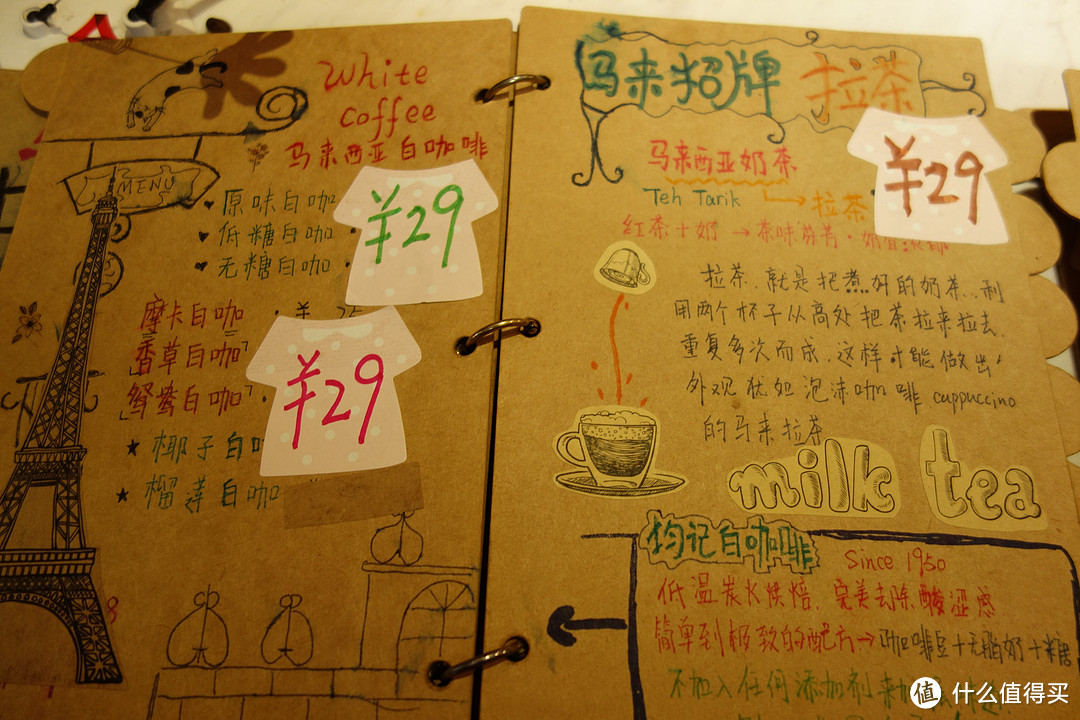 White
Coffee
马来西亚白咖啡
MENU
原味白咖
低糖白咖
无糖白咖
¥29
摩卡白咖
香草白咖
鸳鸯白咖
¥29
椰子白
榴莲白咖
马来招牌 拉茶
马来西亚奶茶
¥29
Teh Tarik 拉茶
红茶+奶→茶味芬芳·奶香
拉茶,就是把煮好的奶茶,利
用两个杯子从高处把茶拉来拉去,
重复多次而成,这样才能做出
外观犹如泡沫咖啡cappuccino
的马来拉茶
milk tea
钧记白咖啡 Since 1950
低温炭火烘焙,完美去除酸涩感
简单到极致的配方→咖啡豆+无脂奶+糖
不加入任何添加剂来
值 什么值得买